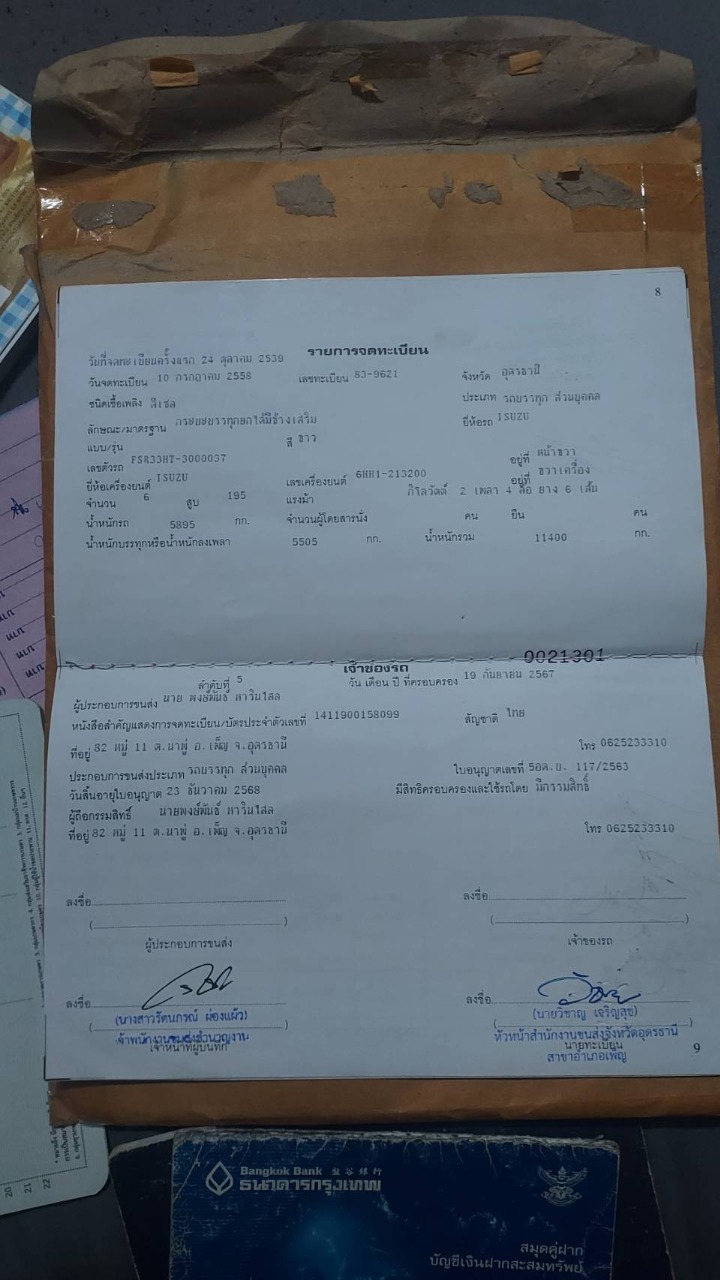 8
รายการจดทะเบียน
วันที่จดทะเบียนครั้งแรก 24 ตุลาคม 2539
วันจดทะเบียน 10 กรกฎาคม 2558 เลขทะเบียน 83-9621 จังหวัด อุดรธานี
ชนิดเชื้อเพลิง ดีเซล ประเภท รถบรรทุก ส่วนบุคคล
ลักษณะ/มาตรฐาน กระบะบรรทุกยกได้มีข้างเสริม ยี่ห้อรถ ISUZU
แบบ/รุ่น สี ขาว
เลขตัวรถ FSR33HT-3000037 อยู่ที่ หน้าขวา
ยี่ห้อเครื่องยนต์ ISUZU เลขเครื่องยนต์ 6HH1-213200 อยู่ที่ ขวาเครื่อง
จำนวน 6 สูบ 195 แรงม้า กิโลวัตต์ 2 เพลา 4 ล้อ ยาง 6 เส้น
น้ำหนักรถ 5895 กก. จำนวนผู้โดยสารนั่ง คน ยืน คน
น้ำหนักบรรทุกหรือน้ำหนักลงเพลา 5505 กก. น้ำหนักรวม 11400 กก.
0021301
เจ้าของรถ
ลำดับที่ 5 วัน เดือน ปี ที่ครอบครอง 19 กันยายน 2567
ผู้ประกอบการขนส่ง นาย พงษ์พันธ์ หารินไสล
หนังสือสำคัญแสดงการจดทะเบียน/บัตรประจำตัวเลขที่ 1411900158099 สัญชาติ ไทย
ที่อยู่ 82 หมู่ 11 ต.นาพู่ อ.เพ็ญ จ.อุดรธานี โทร 0625233310
ประกอบการขนส่งประเภท รถบรรทุก ส่วนบุคคล ใบอนุญาตเลขที่ 5อด.ข. 117/2563
วันสิ้นอายุใบอนุญาต 23 ธันวาคม 2568 มีสิทธิครอบครองและใช้รถโดย มีกรรมสิทธิ์
ผู้ถือกรรมสิทธิ์ นายพงษ์พันธ์ หารินไสล
ที่อยู่ 82 หมู่ 11 ต.นาพู่ อ.เพ็ญ จ.อุดรธานี โทร 0625233310
ลงชื่อ ลงชื่อ
( ) ( )
ผู้ประกอบการขนส่ง เจ้าของรถ
ลงชื่อ ลงชื่อ
(นางสาวรัตนภรณ์ ผ่องแผ้ว) (นายวิชาญ เจริญสุข)
เจ้าพนักงานขนส่งชำนาญงาน หัวหน้าสำนักงานขนส่งจังหวัดอุดรธานี
เจ้าหน้าที่ผู้บันทึก นายทะเบียน
สาขาอำเภอเพ็ญ
9
Bangkok Bank 盤谷銀行
ธนาคารกรุงเทพ
สมุดคู่ฝาก
บัญชีเงินฝากสะสมทรัพย์
20
21
22